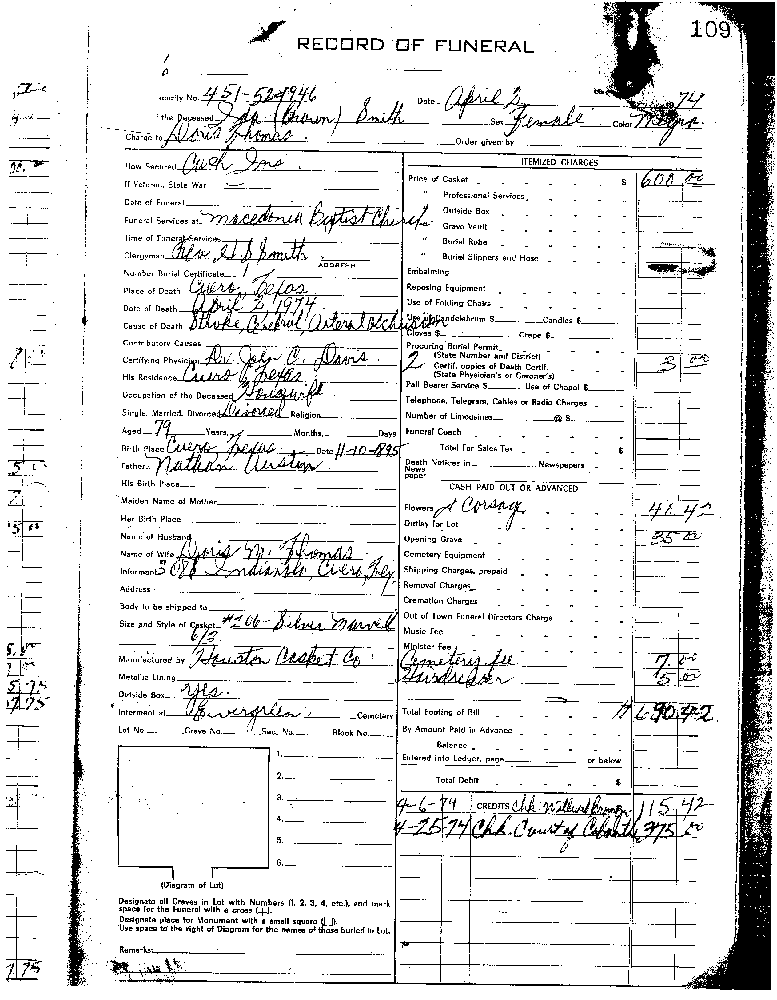 109
RECORD OF FUNERAL
curity No. 451-52-4946 Date April 2, 74
the Deceased Ida (Brown) Smith Sex Female Color Negro
Charge to Doris Thomas Order given by
How Secured Cash Ins
If Veteran, State War
Date of Funeral
Funeral Services at Macedonia Baptist Church
Time of Funeral Services
Clergyman Rev. Smith ADDRESS
Number Burial Certificate
Place of Death Cuero, Texas
Date of Death April 2, 1974
Cause of Death Stroke, Cerebral, Arterial
Contributory Causes
Certifying Physician Dr. John C. Davis
His Residence Cuero, Texas
Occupation of the Deceased Housewife
Single, Married, Divorced Divorced Religion
Aged 79 Years, Months, Days
Birth Place Cuero, Texas Date 11-10-1895
Father Nathan Austin
His Birth Place
Maiden Name of Mother
Her Birth Place
Name of Husband
Name of Wife Doris M. Thomas
Informant Indianola, Cuero, Tex
Address
Body to be shipped to
Size and Style of Casket #206- Silver Marvel
6/3
Manufactured by Houston Casket Co
Metallic Lining
Outside Box Yes.
Interment at Evergreen Cemetery
Lot No. Grave No. Sec. No. Block No.
1.
2.
3.
4.
5.
6.
(Diagram of Lot)
Designate all Graves in Lot with Numbers (1, 2, 3, 4, etc.), and mark
space for the Funeral with a cross (+).
Designate place for Monument with a small square
Use space to the right of Diagram for the names of those buried in Lot.
Remarks:
ITEMIZED CHARGES
Price of Casket $ 600 00
" Professional Services
" Outside Box
" Grave Vault
" Burial Robe
" Burial Slippers and Hose
Embalming
Reposing Equipment
Use of Folding Chairs
Use of Candelabrum $ Candles $
Gloves $ Crepe $
Procuring Burial Permit
(State Number and District)
2 Certif. copies of Death Certif. 3 00
(State Physician's or Coroner's)
Pall Bearer Service $ Use of Chapel $
Telephone, Telegram, Cables or Radio Charges
Number of Limousines @ $
Funeral Coach
Total For Sales Tax $
Death Notices in Newspapers
News
paper
CASH PAID OUT OR ADVANCED
Flowers & Corsage 41 42
Outlay for Lot
Opening Grave 35 00
Cemetery Equipment
Shipping Charges, prepaid
Removal Charges
Cremation Charges
Out of Town Funeral Directors Charge
Music Fee
Minister Fee
Cemetery fee 7 00
Hairdresser 5 00
Total Footing of Bill 690.42
By Amount Paid in Advance
Balance
Entered into Ledger, page or below
Total Debit $
4-6-74 CREDITS Chk. 115 42
4-25-74 Chk. Court of 00